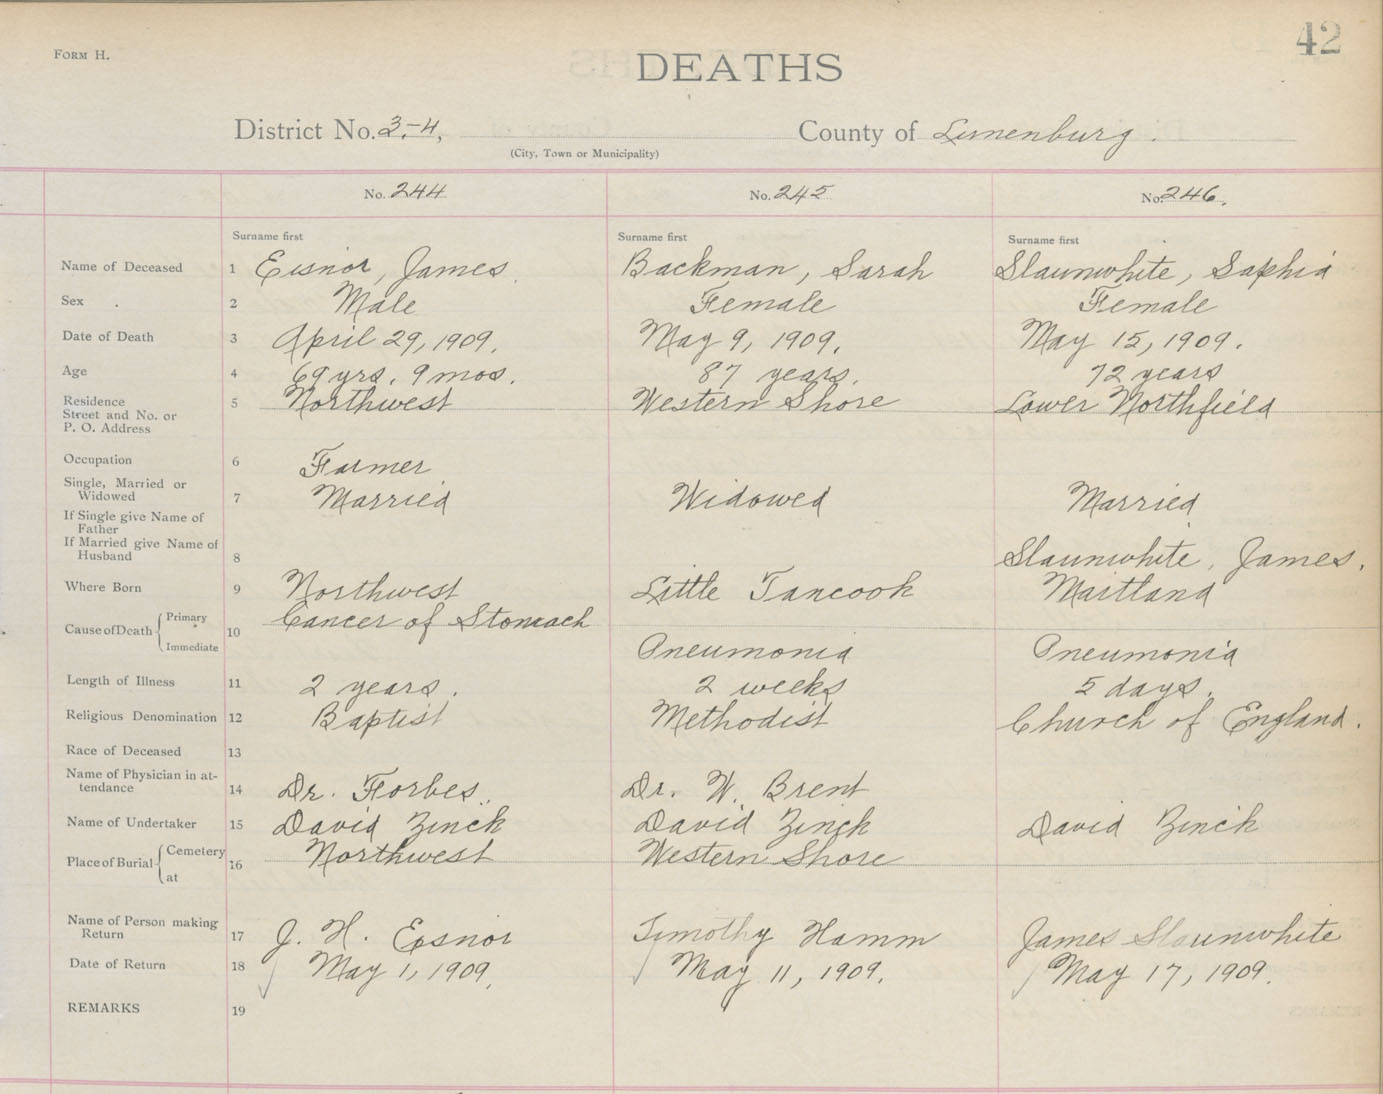 42
FORM H.
DEATHS
District No. 3-4, County of Lunenburg.
(City, Town or Municipality)
No. 244 No. 245 No. 246.
Surname first Surname first Surname first
Name of Deceased 1 Eisnor, James Backman, Sarah Slaunwhite, Sophia
Sex 2 Male Female Female
Date of Death 3 April 29, 1909. May 9, 1909. May 15, 1909.
Age 4 69 yrs. 9 mos. 87 years. 72 years
Residence 5 Northwest Western Shore Lower Northfield
Street and No. or
P. O. Address
Occupation 6 Farmer
Single, Married or
Widowed 7 Married Widowed Married
If Single give Name of
Father
If Married give Name of
Husband 8 Slaunwhite, James.
Where Born 9 Northwest Little Tancook Maitland
Cause of Death 10 Primary Cancer of Stomach
Immediate Pneumonia Pneumonia
Length of Illness 11 2 years. 2 weeks 5 days.
Religious Denomination 12 Baptist Methodist Church of England.
Race of Deceased 13
Name of Physician in at-
tendance 14 Dr. Forbes. Dr. W. Brent
Name of Undertaker 15 David Zinck David Zinck David Zinck
Place of Burial 16 Cemetery Northwest Western Shore
at
Name of Person making
Return 17 J. H. Eisnor Timothy Hamm James Slaunwhite
Date of Return 18 May 1, 1909. May 11, 1909. May 17, 1909.
REMARKS 19